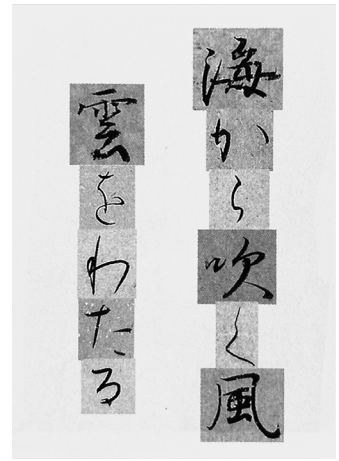 海から吹く風
雲をわたる